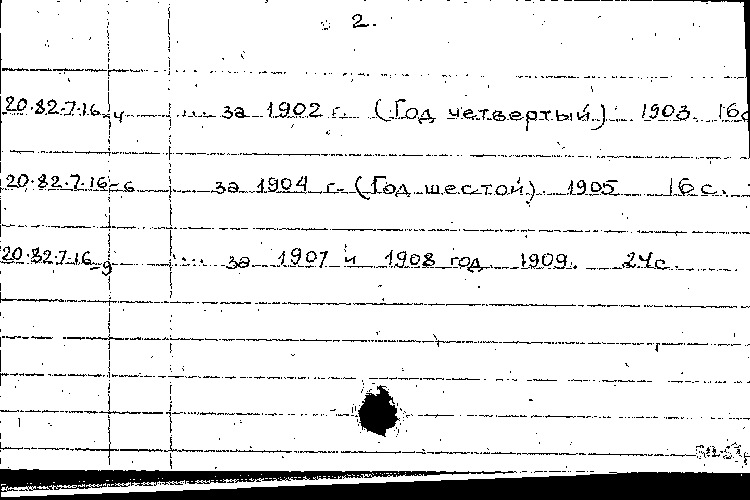 2.
20.82.7.16-4 ... за 1902 г. (Год четвертый) 1903 16с
20.82.7.16-6 ... за 1904 г. (Год шестой). 1905 16с.
20.82.7.16-9 ... за 1907 и 1908 год 1909. 24с.